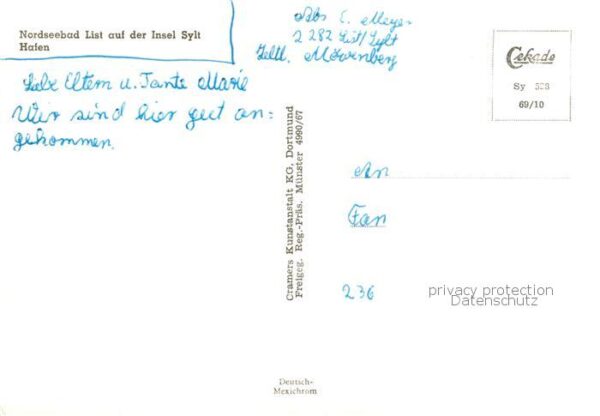 Nordseebad List auf der Insel Sylt
Hafen
Abs E. Meyer
2 282 List/Sylt
Zeltl. Möwenberg
Cekade
Sy 508
69/10
Liebe Eltern u. Tante Marie
Wir sind hier gut an=
gekommen.
Cramers Kunstanstalt KG, Dortmund
Freigeg. Reg.-Präs. Münster 4990/67
An
Fam
236
privacy protection
Datenschutz
Deutsch-
Mexichrom